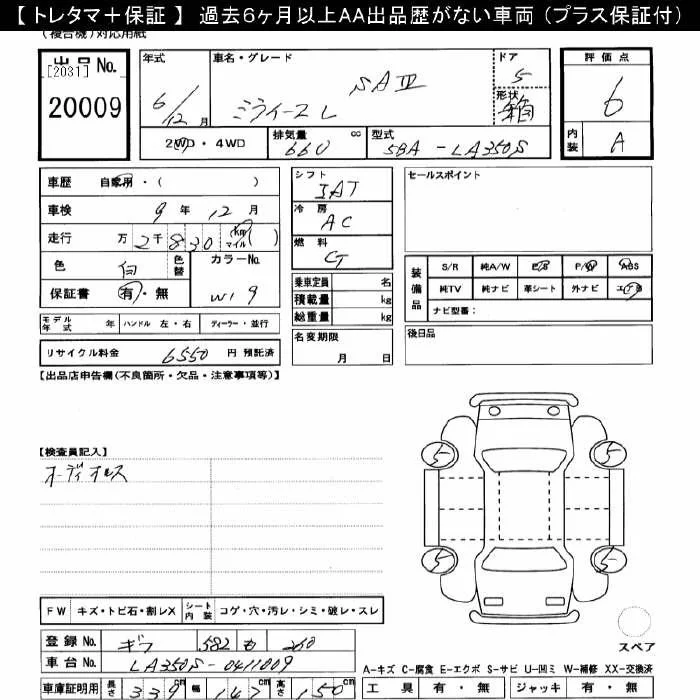 【 トレタマ＋保証 】 過去６ヶ月以上ＡＡ出品歴がない車両（プラス保証付）
（複合機）対応用紙
出品 No.
[2031]
20009
年式 車名・グレード ドア 評価点
6/12月 ミライース L SAⅢ 5 6
形状 箱
2WD・4WD 排気量 660 cc 型式 5BA - LA350S 内装 A
車歴 自家用・( )
車検 9年 12月
走行 万 2千 8 3 0 Km マイル
色 白 色替 カラーNo. W19
保証書 有・無
シフト IAT
冷房 AC
燃料 G
乗車定員 名
積載量 kg
総重量 kg
セールスポイント
装備品 S/R 純A/W P/S P/W ABS
純TV 純ナビ 革シート 外ナビ エアB
ナビ型番：
モデル年式 年 ハンドル 左・右 ディーラー・並行
名変期限 月 日
後日品
リサイクル料金 6550 円 預託済
【出品店申告欄(不良箇所・欠品・注意事項等)】
【検査員記入】
オーディオレス
5 5
5 5
スペア
FW キズ・トビ石・割レX シート内装 コゲ・穴・汚レ・シミ・破レ・スレ
登録 No. ギフ 582 も
車台 No. LA350S-0411009
A-キズ C-腐食 E-エクボ S-サビ U-凹ミ W-補修 XX-交換済
車庫証明用 長さ 339 cm 幅 147 cm 高さ 150 cm
工具 有・無 ジャッキ 有・無